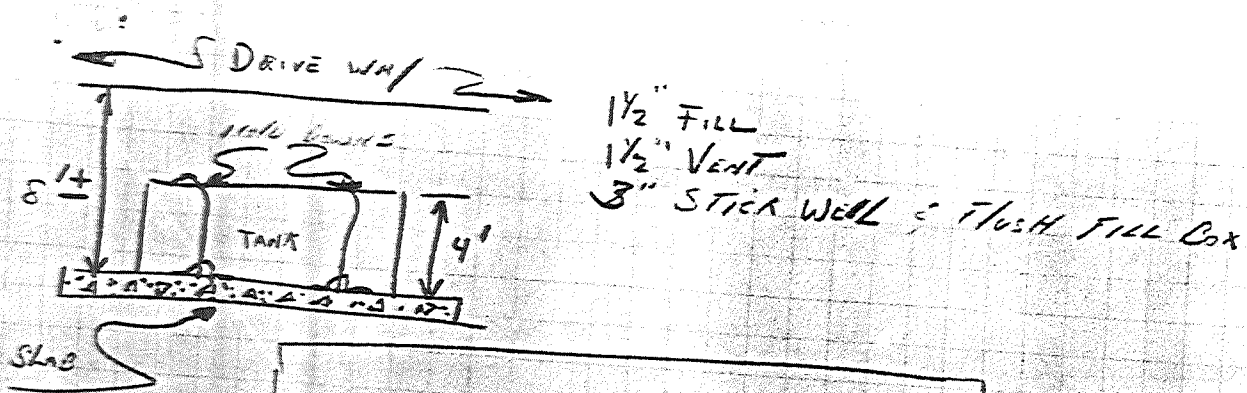 DRIVE WAY
1½" FILL
1½" VENT
3" STICK WELL & FLUSH FILL BOX
HOLD DOWNS
8'±
TANK
4'
SLAB